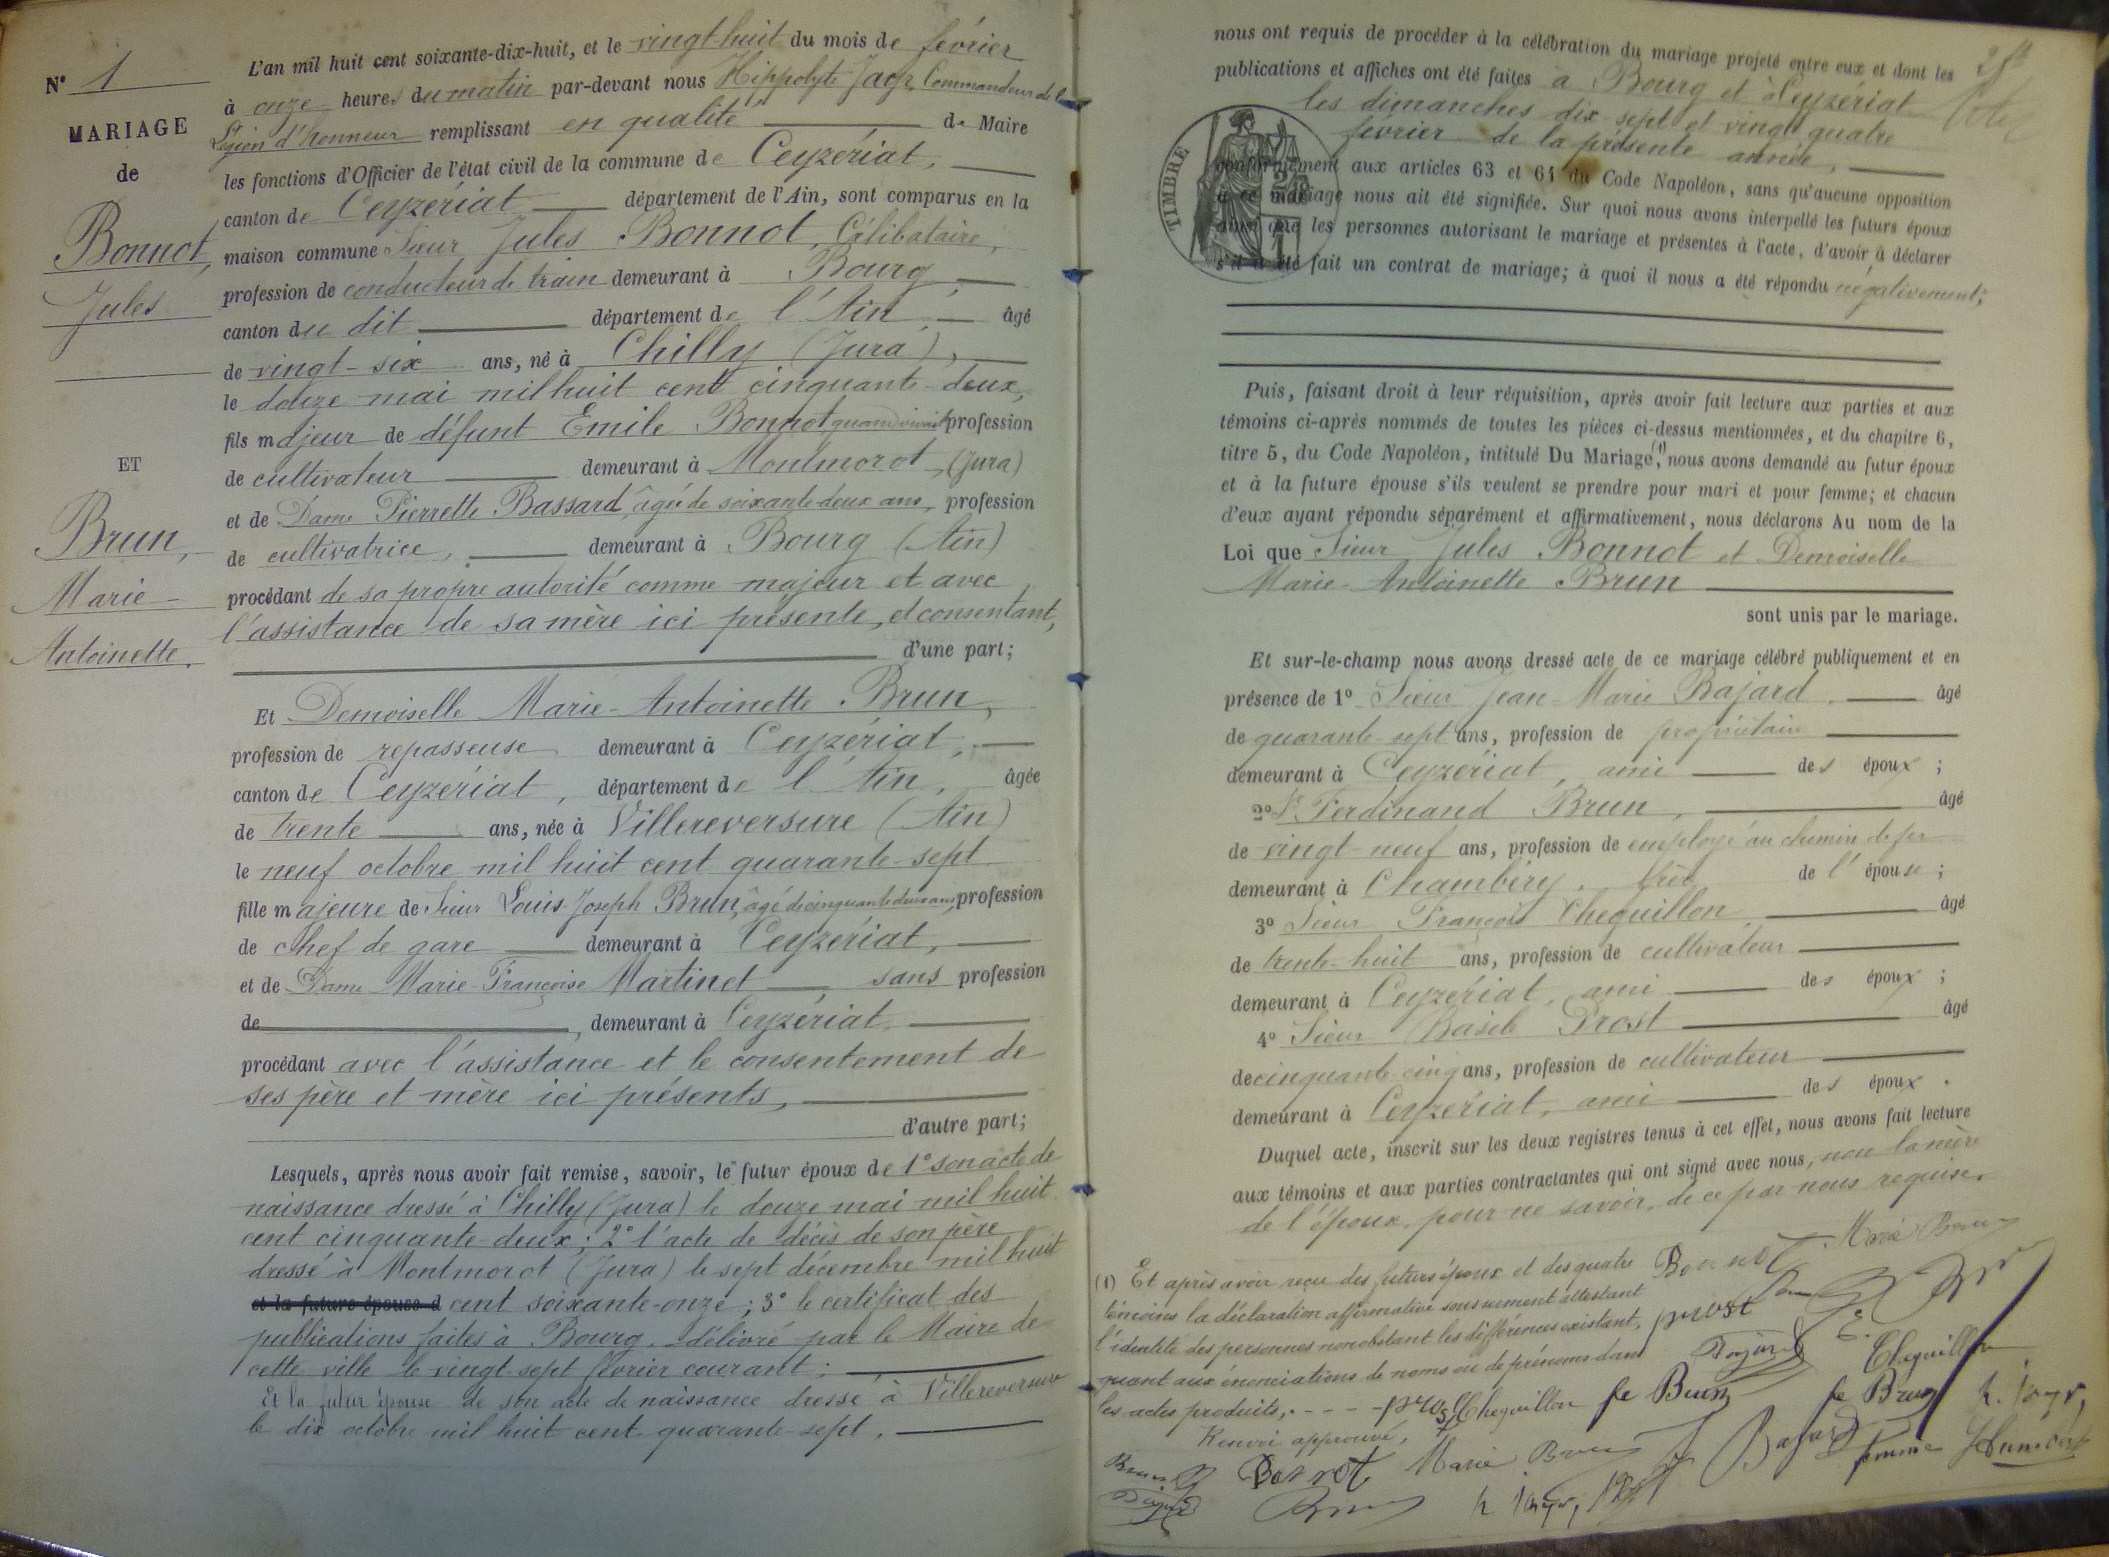 N° 1
MARIAGE
de
Bonnot,
Jules
ET
Brun,
Marie-
Antoinette.
L'an mil huit cent soixante-dix-huit, et le vingt-huit du mois de février
à onze heures du matin par-devant nous Hippolyte Commandeur de la
Légion d'honneur remplissant en qualité de Maire
les fonctions d'Officier de l'état civil de la commune de Ceyzériat,
canton de Ceyzériat département de l'Ain, sont comparus en la
maison commune Sieur Jules Bonnot, Célibataire,
profession de conducteur de train demeurant à Bourg,
canton du dit département de l'Ain, âgé
de vingt-six ans, né à Chilly (Jura),
le douze mai mil huit cent cinquante-deux,
fils majeur de défunt Emile Bonnot quand vivait profession
de cultivateur demeurant à Montmorot, (Jura)
et de Dame Pierrette Bassard, âgée de soixante-deux ans, profession
de cultivatrice, demeurant à Bourg (Ain)
procédant de sa propre autorité comme majeur et avec
l'assistance de sa mère ici présente, et consentant,
d'une part;
Et Demoiselle Marie-Antoinette Brun,
profession de repasseuse demeurant à Ceyzériat,
canton de Ceyzériat, département de l'Ain, âgée
de trente ans, née à Villereversure (Ain)
le neuf octobre mil huit cent quarante-sept
fille majeure de Sieur Louis Joseph Brun, âgé de cinquante deux ans, profession
de chef de gare demeurant à Ceyzériat,
et de Dame Marie-Françoise Martinet sans profession
de , demeurant à Ceyzériat,
procédant avec l'assistance et le consentement de
ses père et mère ici présents,
d'autre part;
Lesquels, après nous avoir fait remise, savoir, le futur époux de 1° son acte de
naissance dressé à Chilly (Jura) le douze mai mil huit
cent cinquante-deux; 2° l'acte de décès de son père
dressé à Montmorot (Jura) le sept décembre mil huit
et la future épouse d cent soixante-onze; 3° le certificat des
publications faites à Bourg, délivré par le Maire de
cette ville le vingt-sept février courant;
Et la futur épouse de son acte de naissance dressé à Villereversure
le dix octobre mil huit cent quarante-sept,
nous ont requis de procéder à la célébration du mariage projeté entre eux et dont les
publications et affiches ont été faites à Bourg et à Ceyzériat
les dimanches dix-sept et vingt quatre
février de la présente année,
TIMBRE
conformément aux articles 63 et 64 du Code Napoléon, sans qu'aucune opposition
à ce mariage nous ait été signifiée. Sur quoi nous avons interpellé les futurs époux
ainsi que les personnes autorisant le mariage et présentes à l'acte, d'avoir à déclarer
s'il a été fait un contrat de mariage; à quoi il nous a été répondu négativement;
Puis, faisant droit à leur réquisition, après avoir fait lecture aux parties et aux
témoins ci-après nommés de toutes les pièces ci-dessus mentionnées, et du chapitre 6,
titre 5, du Code Napoléon, intitulé Du Mariage, (1) nous avons demandé au futur époux
et à la future épouse s'ils veulent se prendre pour mari et pour femme; et chacun
d'eux ayant répondu séparément et affirmativement, nous déclarons Au nom de la
Loi que Sieur Jules Bonnot et Demoiselle
Marie-Antoinette Brun
sont unis par le mariage.
Et sur-le-champ nous avons dressé acte de ce mariage célébré publiquement et en
présence de 1° Sieur Jean-Marie Bajard, âgé
de quarante-sept ans, profession de propriétaire
demeurant à Ceyzériat, ami des époux;
2° Sr Ferdinand Brun, âgé
de vingt-neuf ans, profession de employé au chemin de fer
demeurant à Chambéry, frère de l'épouse;
3° Sieur François Chequillon, âgé
de trente-huit ans, profession de cultivateur
demeurant à Ceyzériat, ami des époux;
4° Sieur Basile Prost âgé
de cinquante-cinq ans, profession de cultivateur
demeurant à Ceyzériat, ami des époux.
Duquel acte, inscrit sur les deux registres tenus à cet effet, nous avons fait lecture
aux témoins et aux parties contractantes qui ont signé avec nous, non la mère
de l'époux, pour ne savoir, de ce par nous requise.
(1) Et après avoir reçu des futurs époux et des quatre
témoins la déclaration affirmative sous serment attestant
l'identité des personnes nonobstant les différences existant,
quant aux énonciations de noms ou de prénoms dans
les actes produits,
Renvoi approuvé,
Bonnot Marie Brun
prost
Bajard Chequillon
prost Chequillon fe Brun fe Brun
Brun Bonnot Marie Brun Bajard femme
Brun